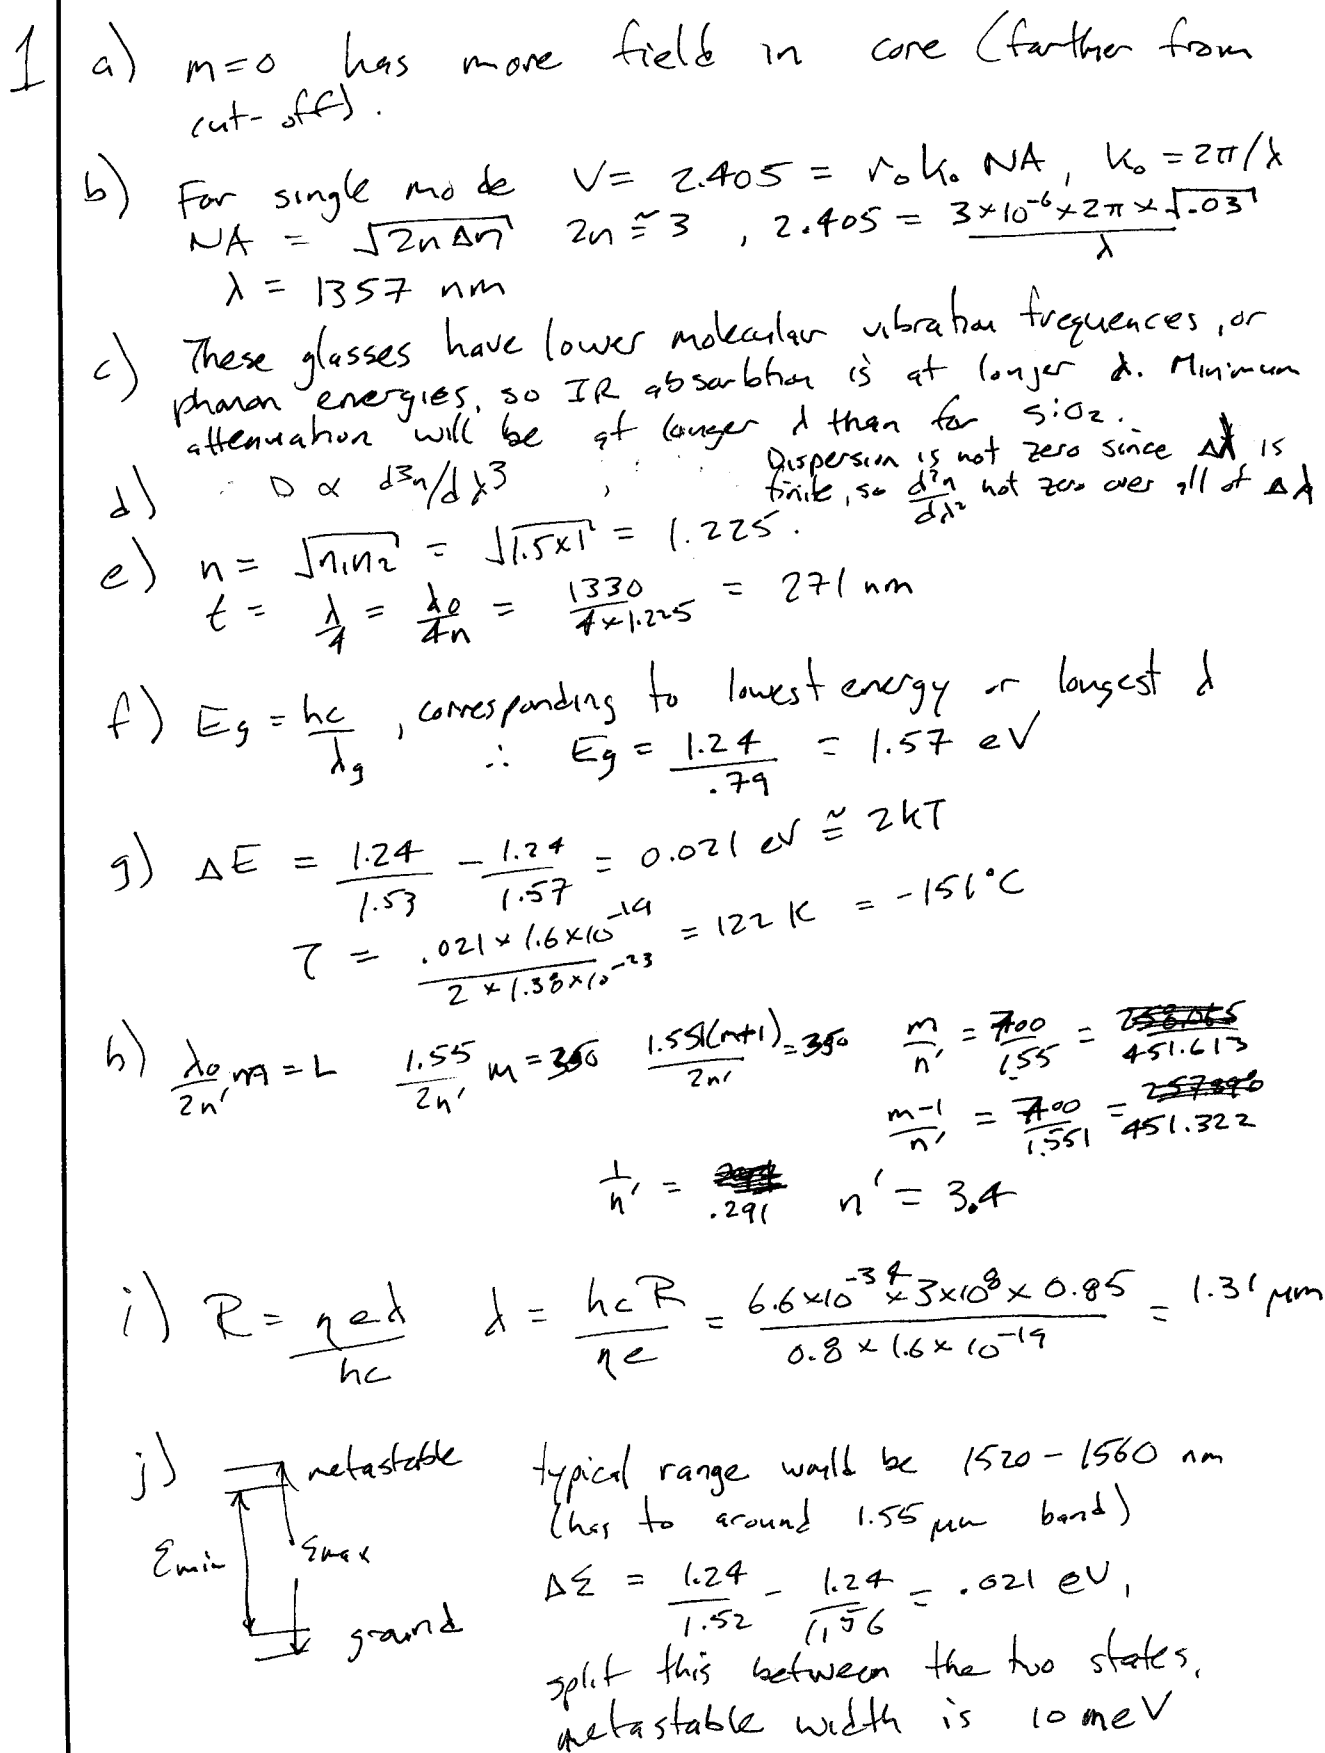 1 a) m=0 has more field in core (farther from
cut-off).
b) For single mode V = 2.405 = r₀k₀ NA, k₀ = 2π/λ
NA = √2nΔn 2n ≅ 3, 2.405 = 3×10⁻⁶×2π×√.03 / λ
λ = 1357 nm
c) These glasses have lower molecular vibration frequences, or
phonon energies, so IR absorbtion is at longer λ. Minimum
attenuation will be at longer λ than for SiO₂.
d) ∴ D ∝ d³n/dλ³, Dispersion is not zero since Δλ is
finite, so d²n/dλ² not zero over all of Δλ
e) n = √n₁n₂ = √1.5×1 = 1.225.
t = λ/4 = λ₀/4n = 1330/4×1.225 = 271 nm
f) Eg = hc/λg, corresponding to lowest energy or longest λ
∴ Eg = 1.24/.79 = 1.57 eV
g) ΔE = 1.24/1.53 - 1.24/1.57 = 0.021 eV ≅ 2kT
T = .021×1.6×10⁻¹⁹ / 2×1.38×10⁻²³ = 122 K = -151°C
h) λ₀/2n' m = L 1.55/2n' m = 350 1.551(m+1)/2n' = 350 m/n' = 700/1.55 = 451.613
m-1/n' = 700/1.551 = 451.322
1/n' = .291 n' = 3.4
i) R = ηeλ/hc λ = hcR/ηe = 6.6×10⁻³⁴×3×10⁸×0.85 / 0.8×1.6×10⁻¹⁹ = 1.31 μm
j) metastable typical range would be 1520 - 1560 nm
(has to around 1.55 μm band)
Emin Emax ΔE = 1.24/1.52 - 1.24/1.56 = .021 eV,
ground
split this between the two states,
metastable width is 10 meV